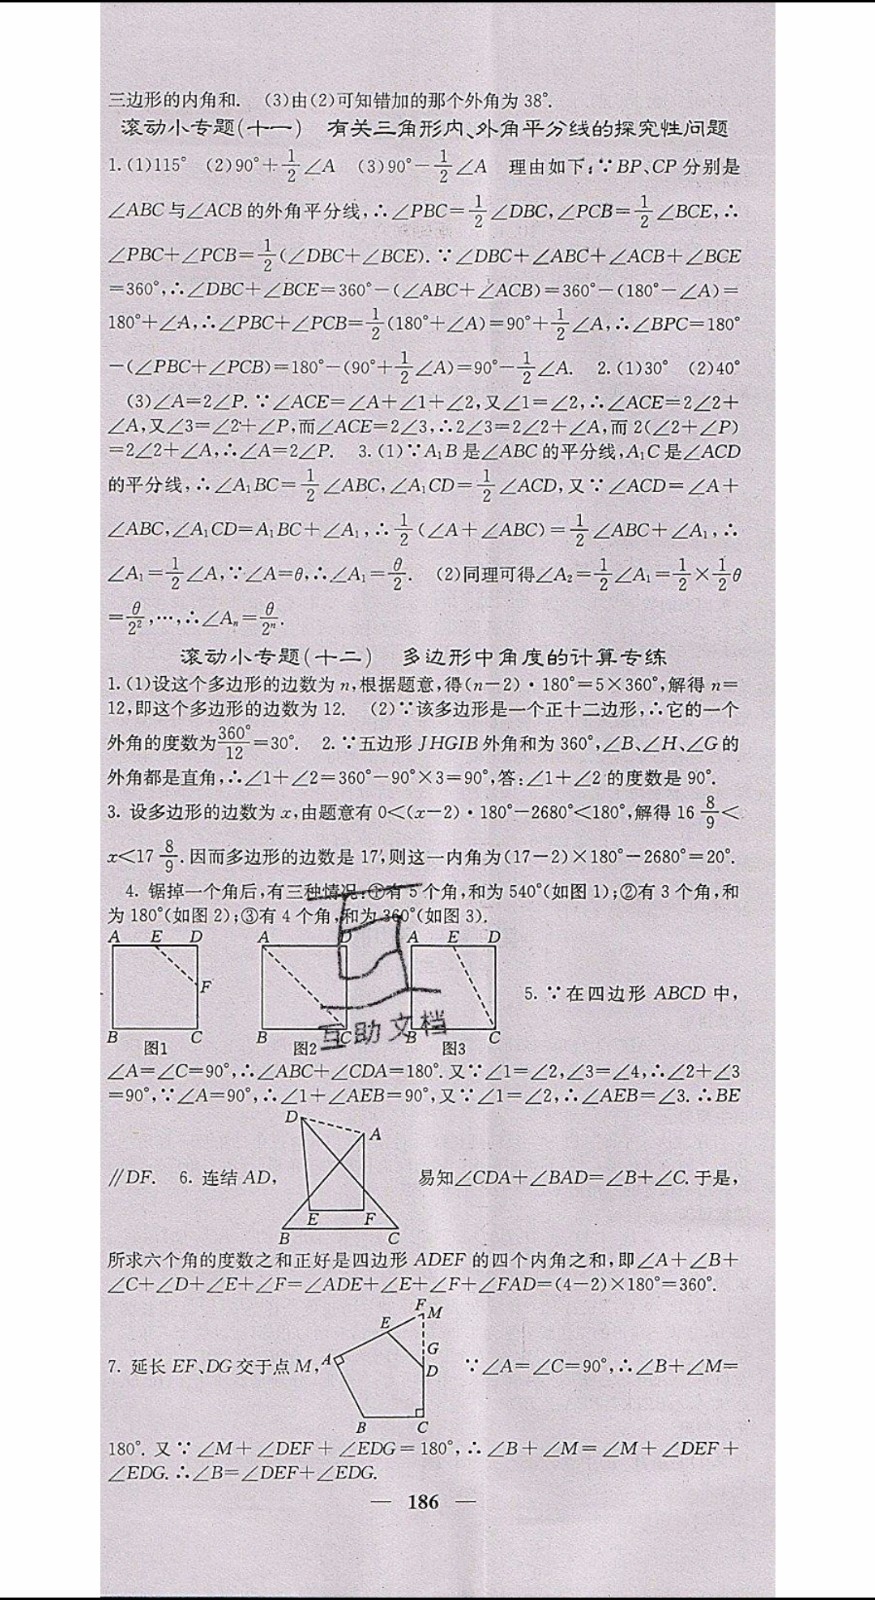 三边形的内角和. (3)由(2)可知错加的那个外角为 38°.
滚动小专题(十一) 有关三角形内、外角平分线的探究性问题
1. (1)115° (2)90°+1/2∠A (3)90°-1/2∠A 理由如下:∵BP、CP 分别是
∠ABC 与∠ACB 的外角平分线,∴∠PBC=1/2∠DBC,∠PCB=1/2∠BCE,∴
∠PBC+∠PCB=1/2(∠DBC+∠BCE). ∵∠DBC+∠ABC+∠ACB+∠BCE
=360°,∴∠DBC+∠BCE=360°-(∠ABC+∠ACB)=360°-(180°-∠A)=
180°+∠A,∴∠PBC+∠PCB=1/2(180°+∠A)=90°+1/2∠A,∴∠BPC=180°
-(∠PBC+∠PCB)=180°-(90°+1/2∠A)=90°-1/2∠A. 2. (1)30° (2)40°
(3)∠A=2∠P. ∵∠ACE=∠A+∠1+∠2,又∠1=∠2,∴∠ACE=2∠2+
∠A,又∠3=∠2+∠P,而∠ACE=2∠3,∴2∠3=2∠2+∠A,而 2(∠2+∠P)
=2∠2+∠A,∴∠A=2∠P. 3. (1)∵A₁B 是∠ABC 的平分线,A₁C 是∠ACD
的平分线,∴∠A₁BC=1/2∠ABC,∠A₁CD=1/2∠ACD,又∵∠ACD=∠A+
∠ABC,∠A₁CD=A₁BC+∠A₁,∴1/2(∠A+∠ABC)=1/2∠ABC+∠A₁,∴
∠A₁=1/2∠A,∵∠A=θ,∴∠A₁=θ/2. (2)同理可得∠A₂=1/2∠A₁=1/2×1/2θ
=θ/2²,…,∴∠Aₙ=θ/2ⁿ.
滚动小专题(十二) 多边形中角度的计算专练
1. (1)设这个多边形的边数为 n,根据题意,得(n-2)·180°=5×360°,解得 n=
12,即这个多边形的边数为 12. (2)∵该多边形是一个正十二边形,∴它的一个
外角的度数为360°/12=30°. 2. ∵五边形 JHGIB 外角和为 360°,∠B、∠H、∠G 的
外角都是直角,∴∠1+∠2=360°-90°×3=90°,答:∠1+∠2 的度数是 90°.
3. 设多边形的边数为 x,由题意有 0<(x-2)·180°-2680°<180°,解得 16 8/9<
x<17 8/9. 因而多边形的边数是 17,则这一内角为(17-2)×180°-2680°=20°.
4. 锯掉一个角后,有三种情况:①有 5 个角,和为 540°(如图 1);②有 3 个角,和
为 180°(如图 2);③有 4 个角,和为 360°(如图 3).
A E D A D A E D
F
B C B C B C
图1 图2 图3
互助文档
5. ∵在四边形 ABCD 中,
∠A=∠C=90°,∴∠ABC+∠CDA=180°. 又∵∠1=∠2,∠3=∠4,∴∠2+∠3
=90°,∵∠A=90°,∴∠1+∠AEB=90°,又∵∠1=∠2,∴∠AEB=∠3. ∴BE
D
A
∥DF. 6. 连结 AD, 易知∠CDA+∠BAD=∠B+∠C. 于是,
E F
B C
所求六个角的度数之和正好是四边形 ADEF 的四个内角之和,即∠A+∠B+
∠C+∠D+∠E+∠F=∠ADE+∠E+∠F+∠FAD=(4-2)×180°=360°.
F M
E
G
7. 延长 EF、DG 交于点 M, A D ∵∠A=∠C=90°,∴∠B+∠M=
B C
180°. 又∵∠M+∠DEF+∠EDG=180°,∴∠B+∠M=∠M+∠DEF+
∠EDG. ∴∠B=∠DEF+∠EDG.
— 186 —